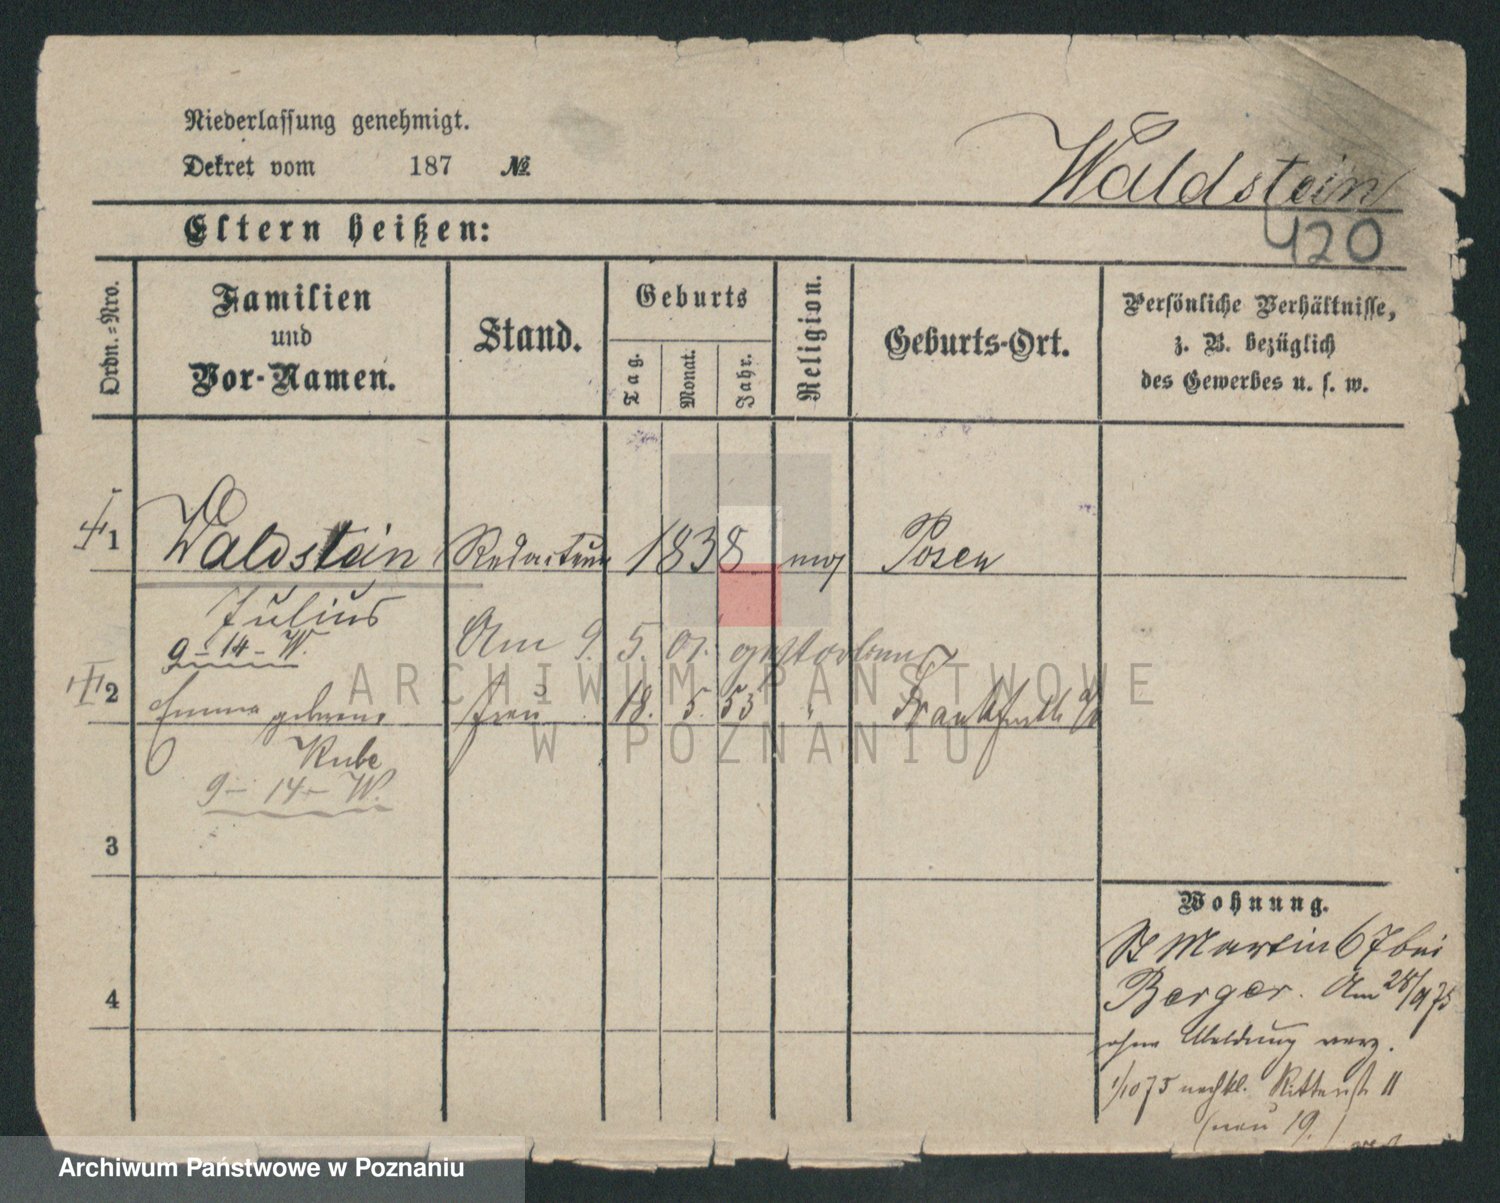 Niederlassung genehmigt.
Dekret vom 187 №
Waldstein
Eltern heißen:
420
Ordn.-Nro.
Familien
und
Vor-Namen.
Stand.
Geburts
Tag.
Monat.
Jahr.
Religion.
Geburts-Ort.
Persönliche Verhältnisse,
z. B. bezüglich
des Gewerbes u. s. w.
1 Waldstein Redacteur 1838 mos Posen
Julius
9-14-W.
Am 9. 5. 01. gestorben
2 Emma geborene Frau 18. 5. 53 " Frankfurth a/o
Kube
9-14-W.
3
4
Wohnung.
St Martin 67 bei
Berger. Am 28/9 75
ohne Meldung verz.
1/10 75 nachkl. Ritterst 11
(neu 19.)
ARCHIWUM PAŃSTWOWE
W POZNANIU
Archiwum Państwowe w Poznaniu